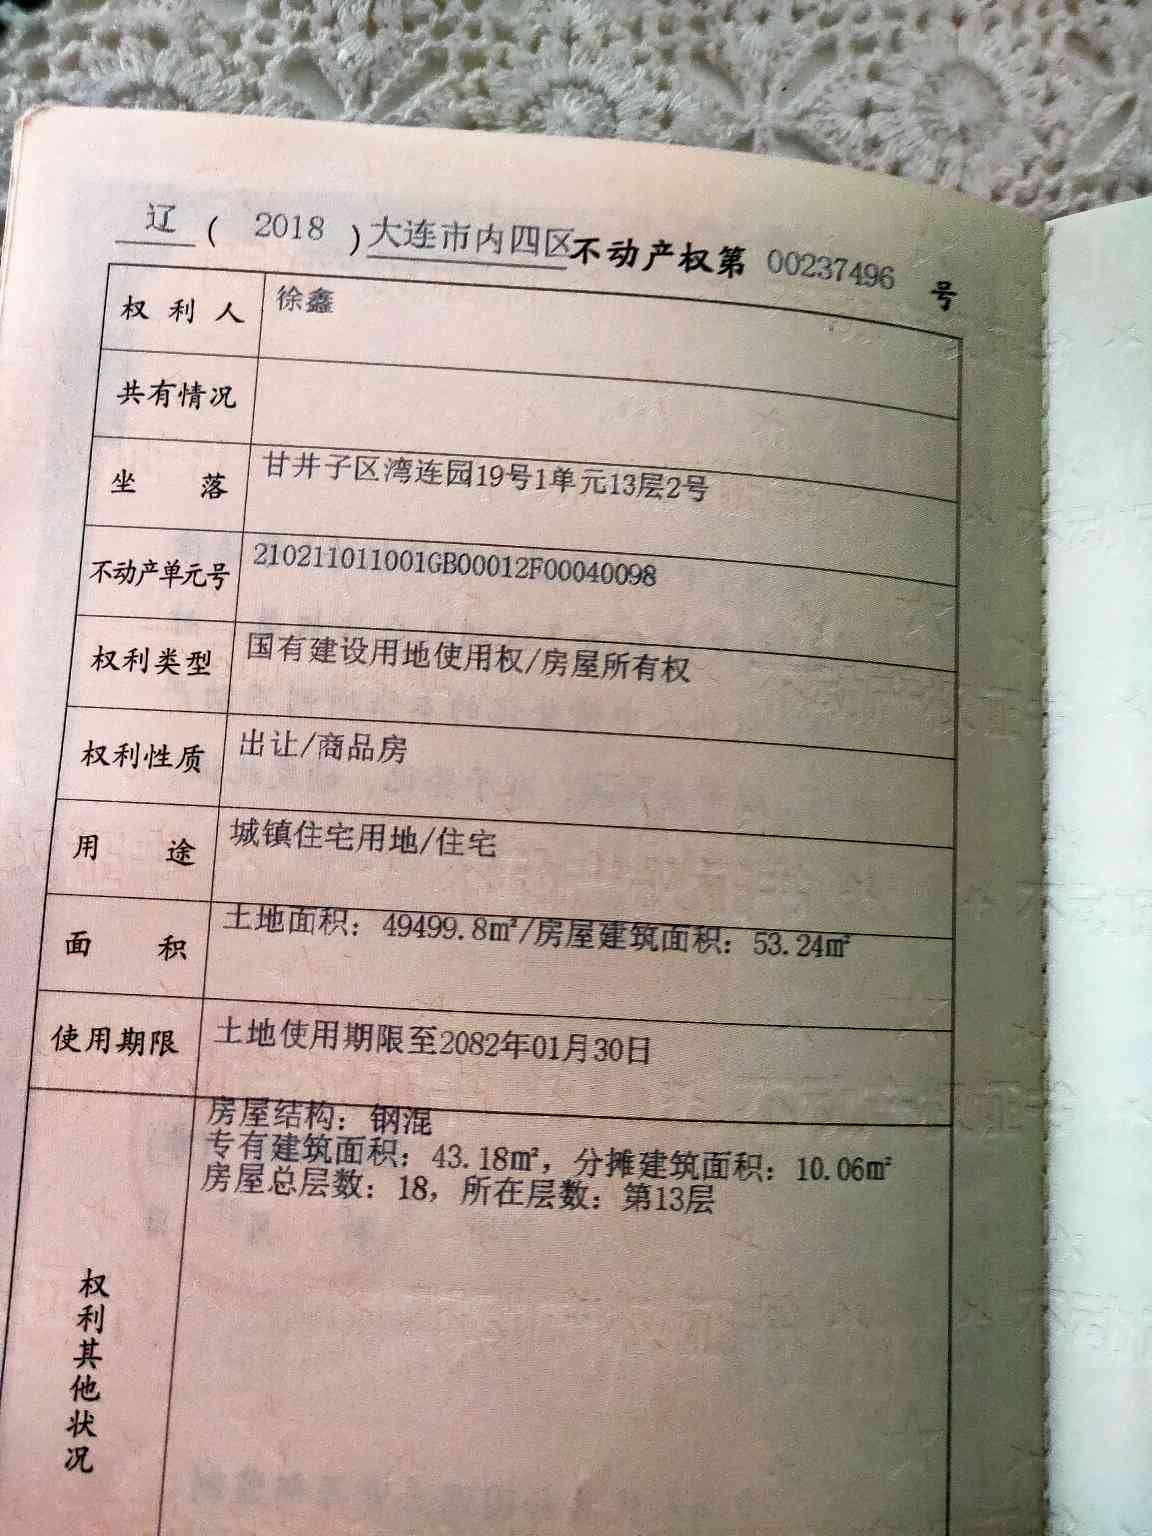 辽 ( 2018 ) 大连市内四区 不动产权第 00237496 号
权利人 徐鑫
共有情况
坐落 甘井子区湾连园19号1单元13层2号
不动产单元号 210211011001GB00012F00040098
权利类型 国有建设用地使用权/房屋所有权
权利性质 出让/商品房
用途 城镇住宅用地/住宅
面积 土地面积：49499.8㎡/房屋建筑面积：53.24㎡
使用期限 土地使用期限至2082年01月30日
权利其他状况
房屋结构：钢混
专有建筑面积：43.18㎡，分摊建筑面积：10.06㎡
房屋总层数：18，所在层数：第13层